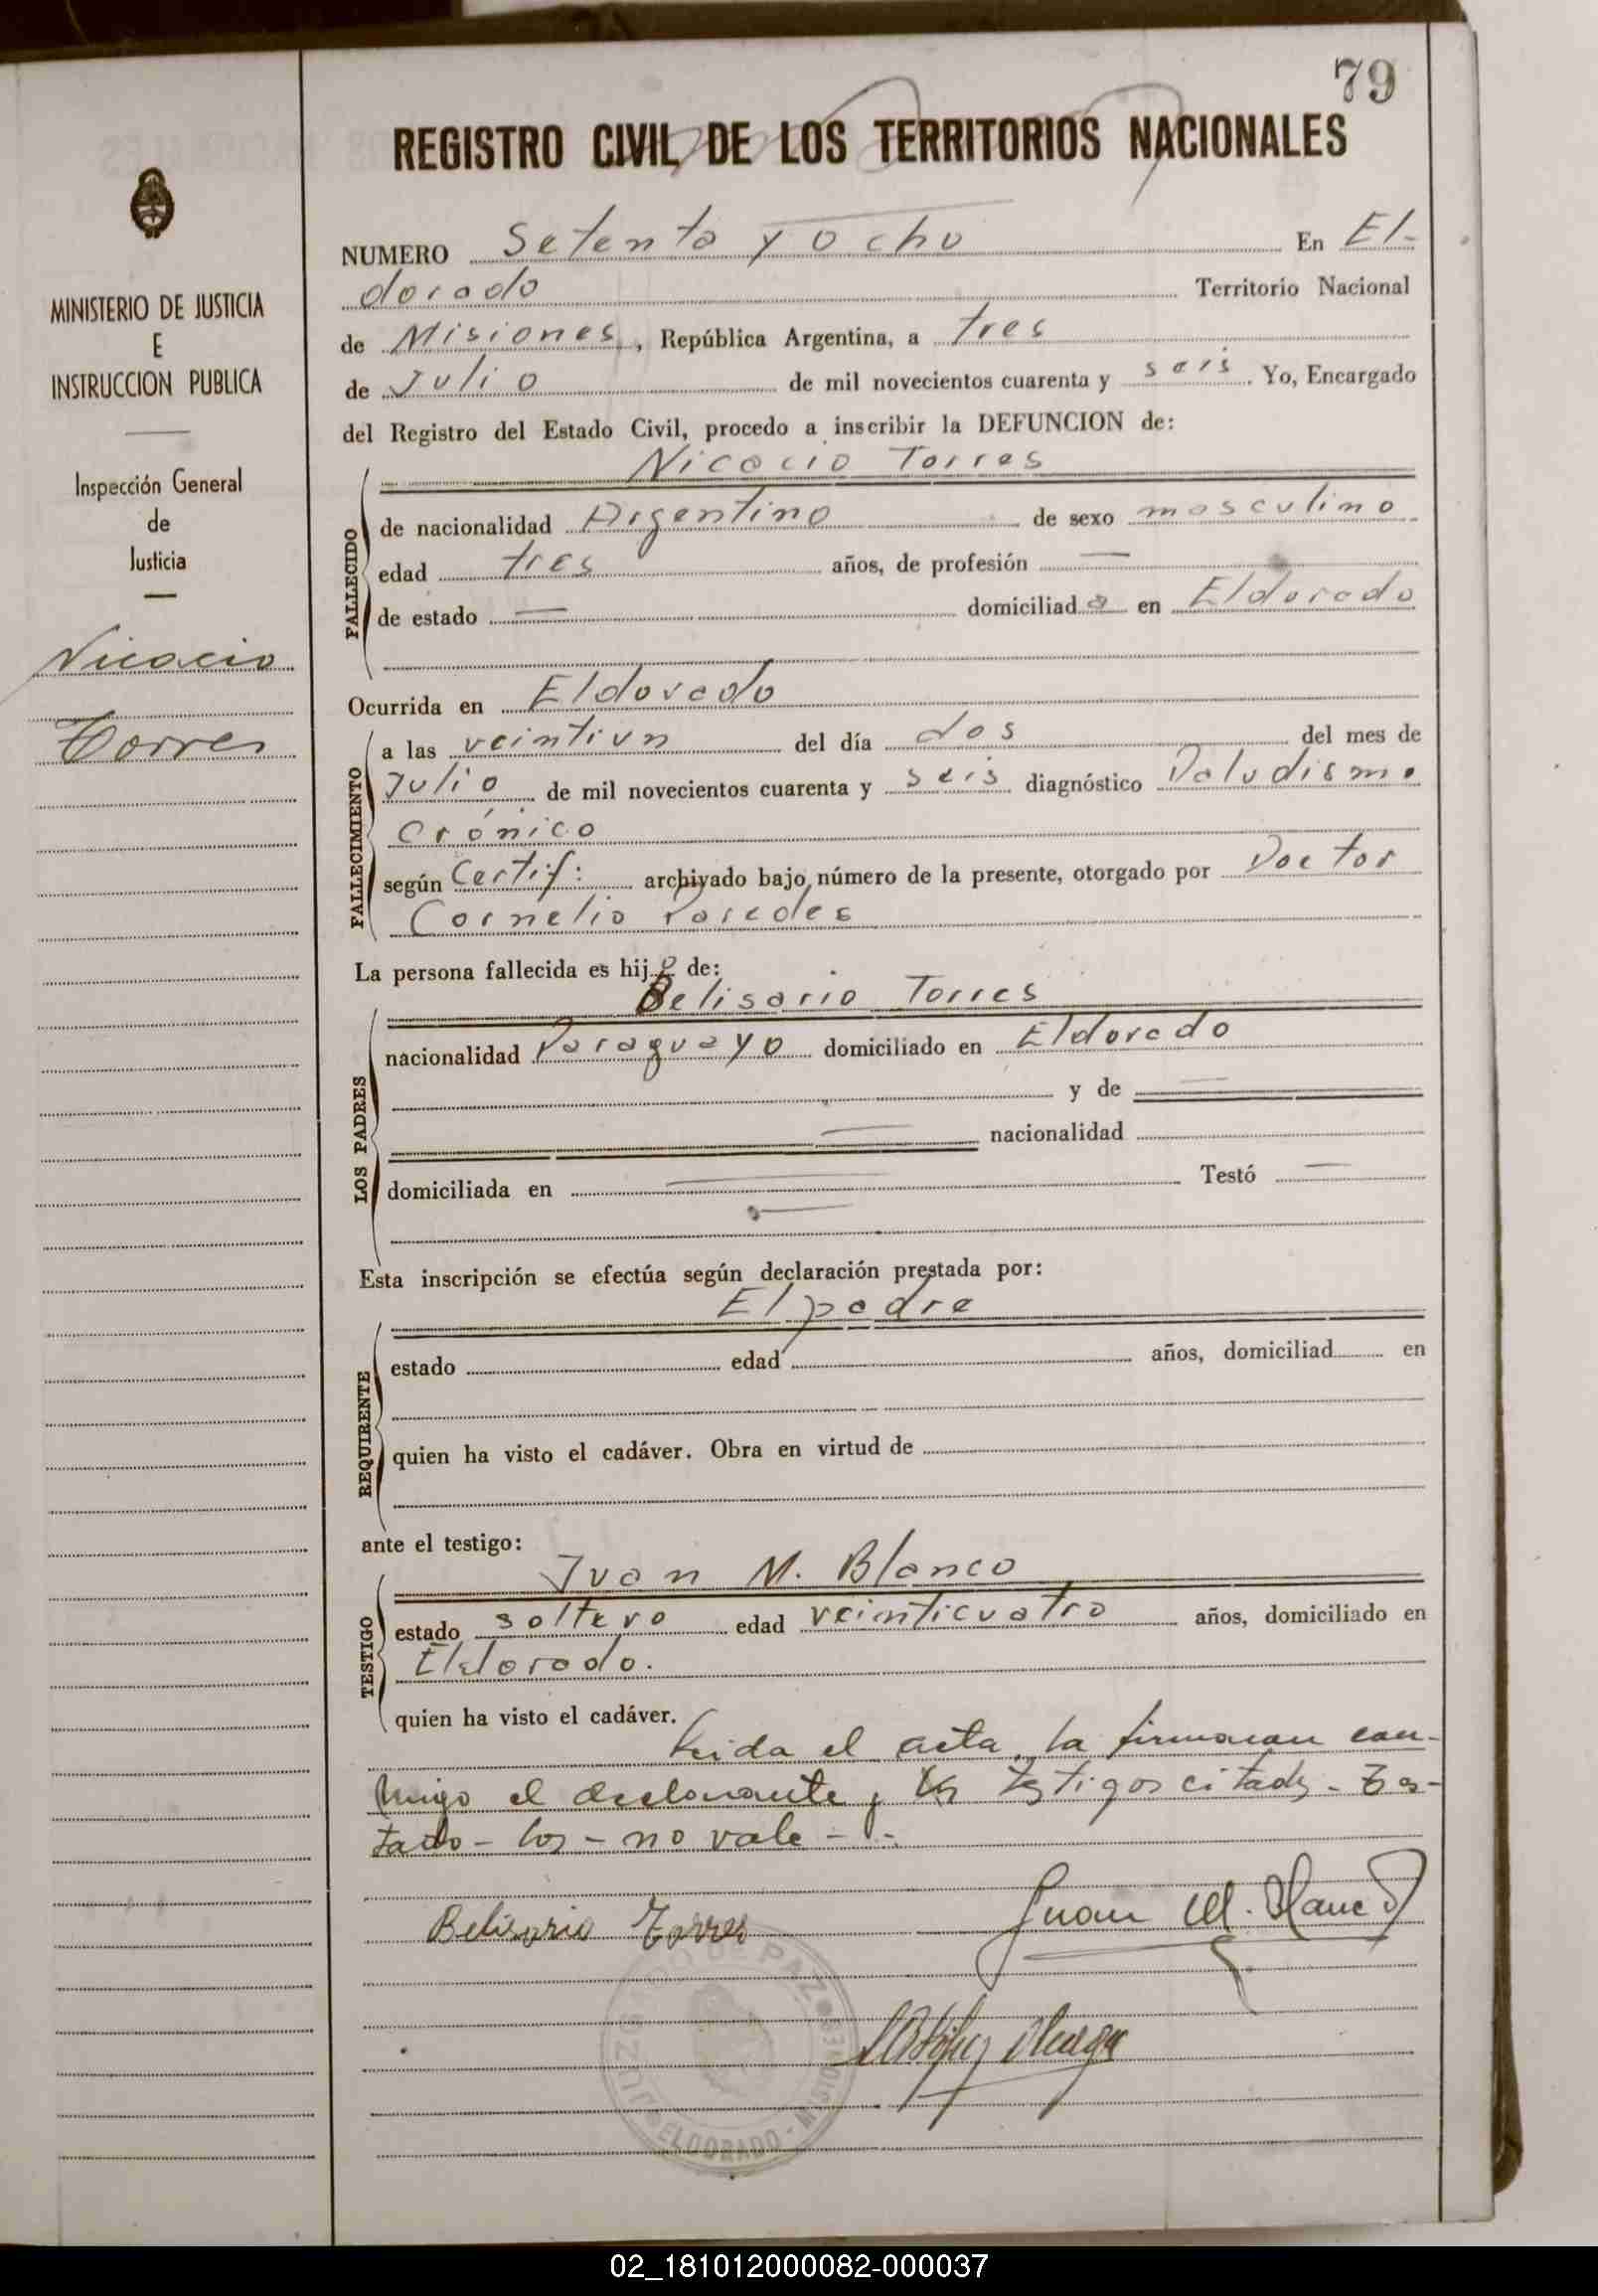 79
REGISTRO CIVIL DE LOS TERRITORIOS NACIONALES
MINISTERIO DE JUSTICIA
E
INSTRUCCION PUBLICA
Inspección General
de
Justicia
Nicacio
Torres
NUMERO Setenta y ocho En El-
dorado Territorio Nacional
de Misiones, República Argentina, a tres
de Julio de mil novecientos cuarenta y seis. Yo, Encargado
del Registro del Estado Civil, procedo a inscribir la DEFUNCION de:
Nicacio Torres
FALLECIDO
de nacionalidad Argentino de sexo masculino
edad tres años, de profesión —
de estado — domiciliad a en Eldorado
Ocurrida en Eldorado
FALLECIMIENTO
a las veintiun del día dos del mes de
Julio de mil novecientos cuarenta y seis diagnóstico Paludismo
Crónico
según Certif: archivado bajo número de la presente, otorgado por Doctor
Cornelio Paredes
La persona fallecida es hijo de:
Belisario Torres
LOS PADRES
nacionalidad Paraguayo domiciliado en Eldorado
y de —
— nacionalidad
domiciliada en — Testó —
—
Esta inscripción se efectúa según declaración prestada por:
El padre
REQUIRENTE
estado edad años, domiciliad en
quien ha visto el cadáver. Obra en virtud de
ante el testigo:
Juan M. Blanco
TESTIGO
estado soltero edad veinticuatro años, domiciliado en
Eldorado.
quien ha visto el cadáver.
Leida el acta, la firmaron con-
migo el declarante y los testigos citados - Tes-
tado - los - no vale - . -
Belisario Torres
Juan M. Blanco
JUZGADO DE PAZ
ELDORADO - MISIONES
02_181012000082-000037